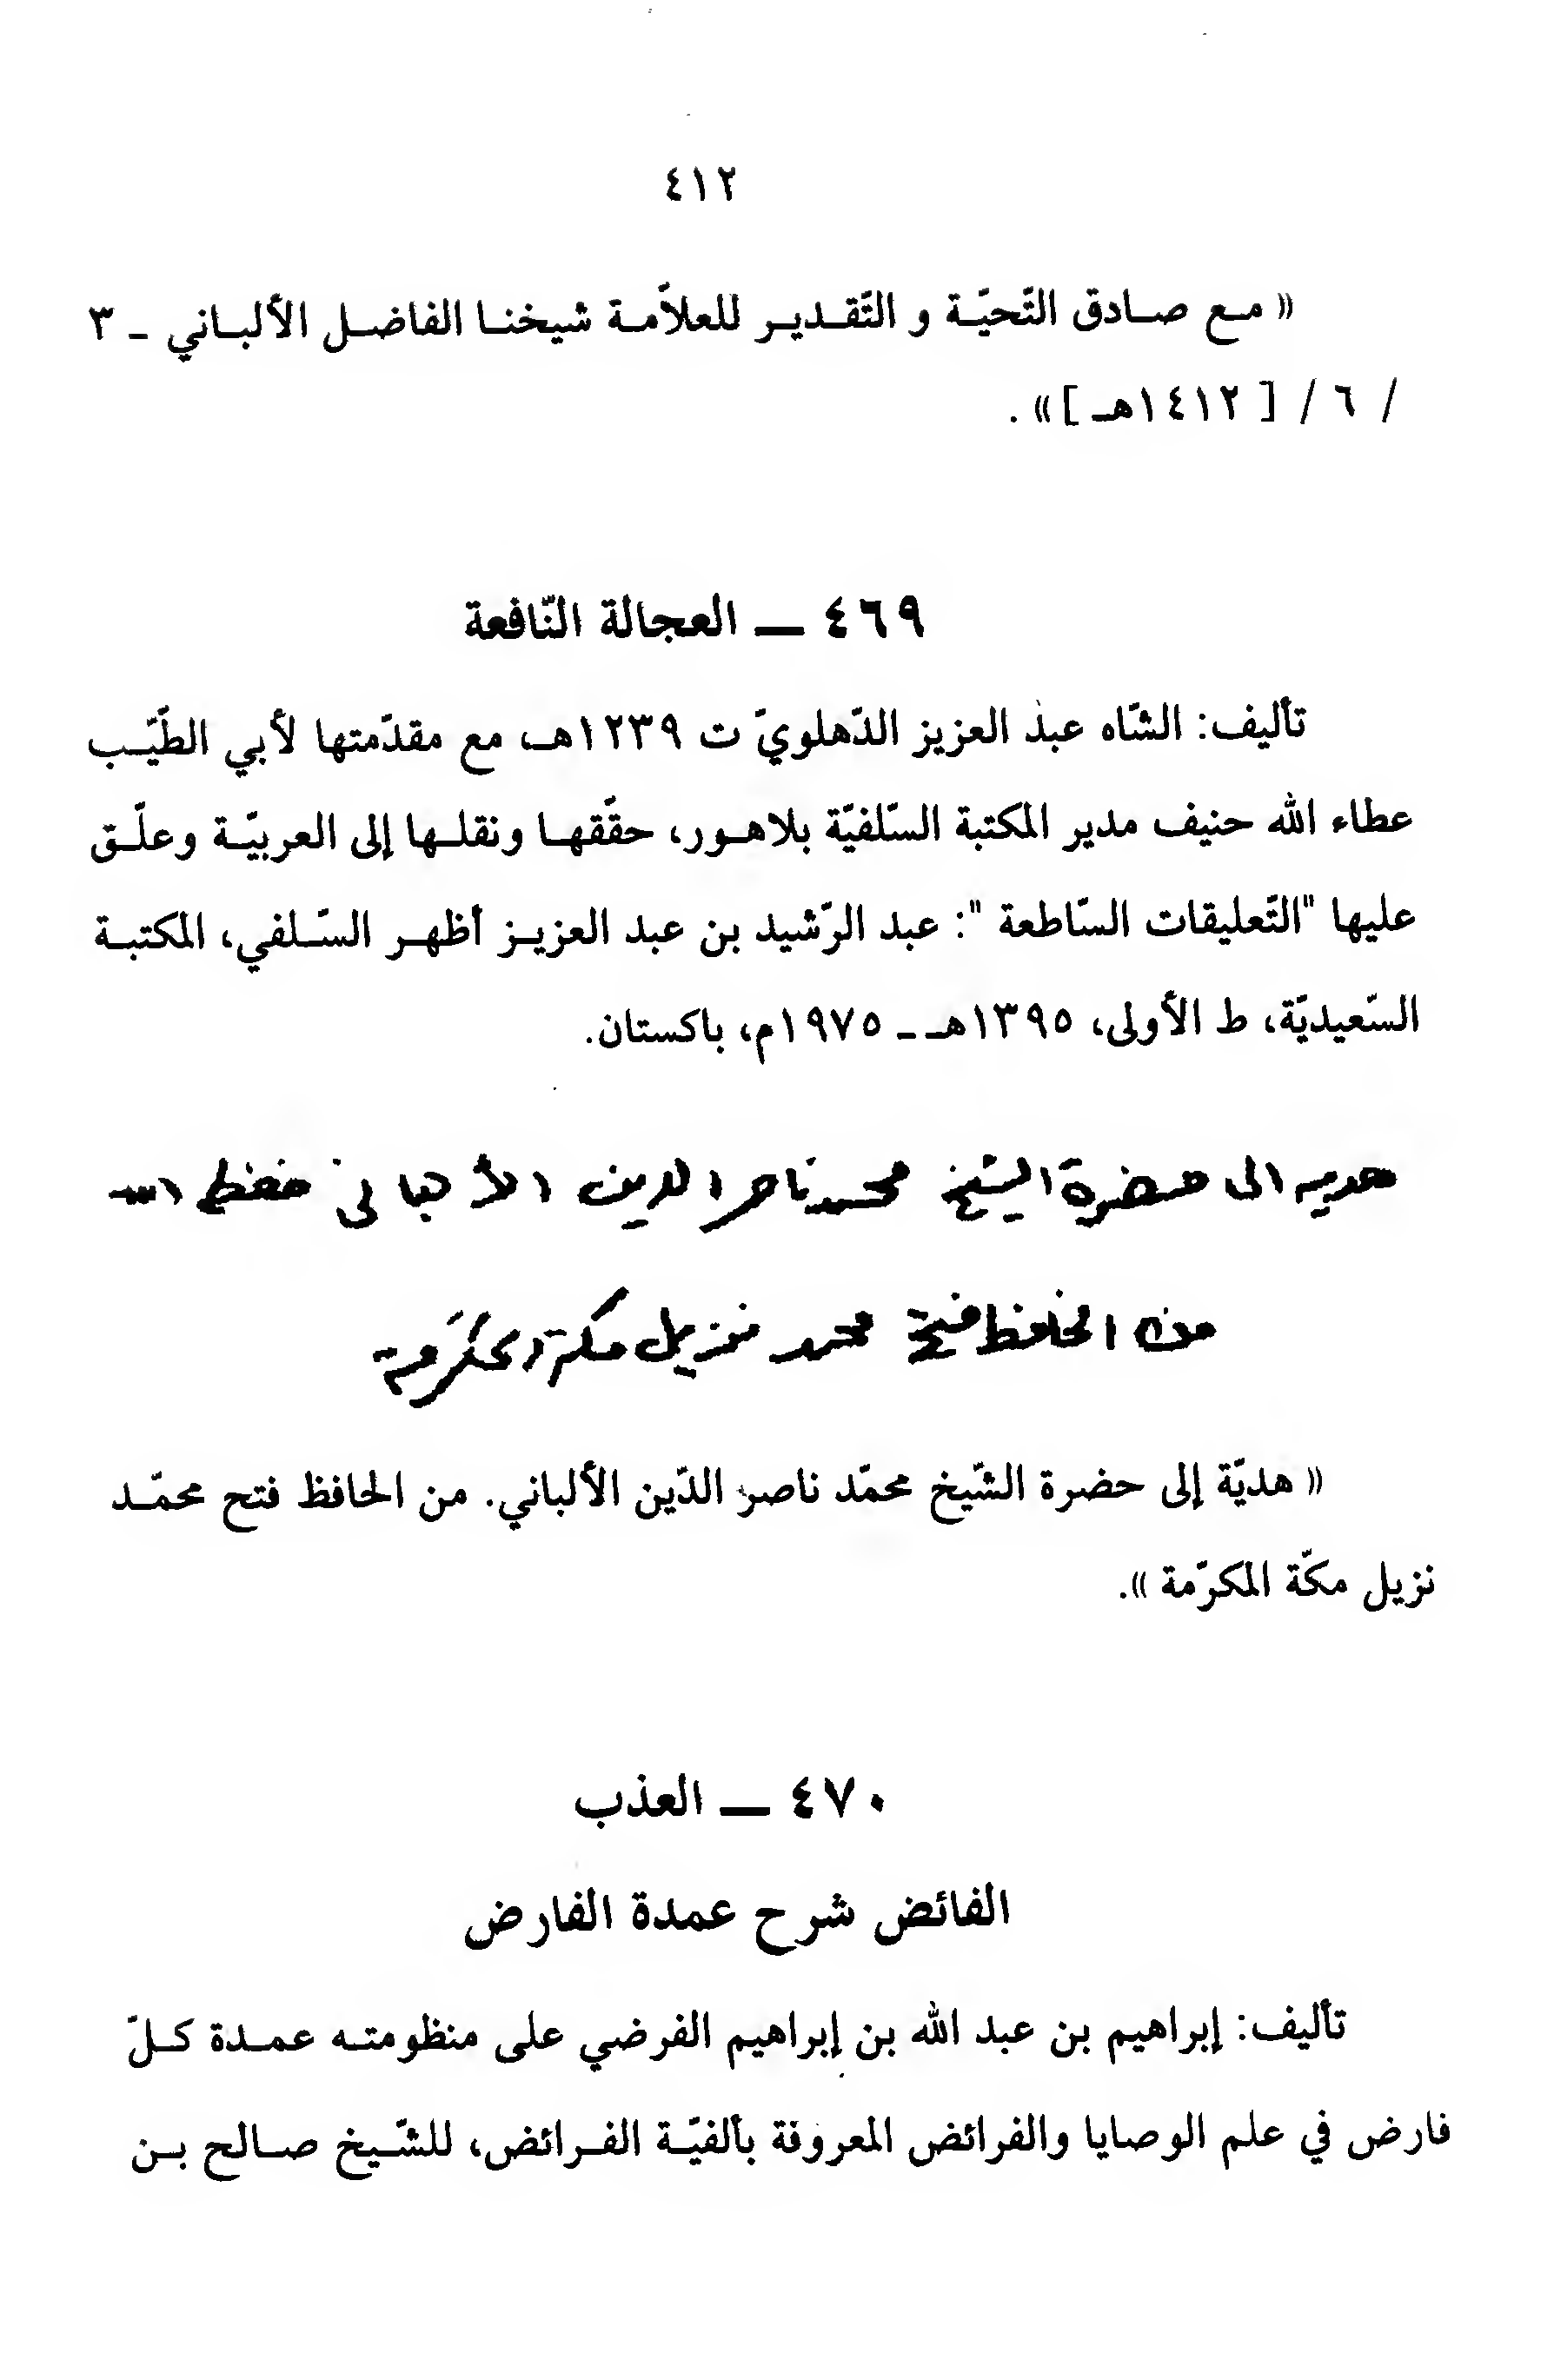 ٤١٢
« مـع صـادق التّحيّـة و التّقـديـر للعلاّمـة شيخنـا الفاضـل الألبـاني ـ ٣
/ ٦ / [ ١٤١٢هـ ]» .
٤٦٩ ـــ العجالة النّافعة
تأليف: الشّاه عبد العزيز الدّهلويّ ت ١٢٣٩هـ، مع مقدّمتها لأبي الطّيّـب
عطاء الله حنيف مدير المكتبة السّلفيّة بلاهـور، حقّقهـا ونقلـها إلى العربيّـة وعلّـق
عليها "التّعليقات السّاطعة ": عبد الرّشيد بن عبد العزيـز أظهـر السّـلفي، المكتبـة
السّعيديّة، ط الأولى، ١٣٩٥هـ ـ ١٩٧٥م، باكستان.
هديه الى حضرة الشيخ محمد ناصر الدين الألبانى حفظه الله
من الحافظ فتح محمد نزيل مكة المكرمة
« هديّة إلى حضرة الشّيخ محمّد ناصر الدّين الألباني. من الحافظ فتح محمّـد
نزيل مكّة المكرّمة ».
٤٧٠ ـــ العذب
الفائض شرح عمدة الفارض
تأليف: إبراهيم بن عبد الله بن إبراهيم الفرضي على منظومتـه عمـدة كـلّ
فارض في علم الوصايا والفرائض المعروفة بألفيّـة الفـرائض، للشّـيخ صـالح بـن